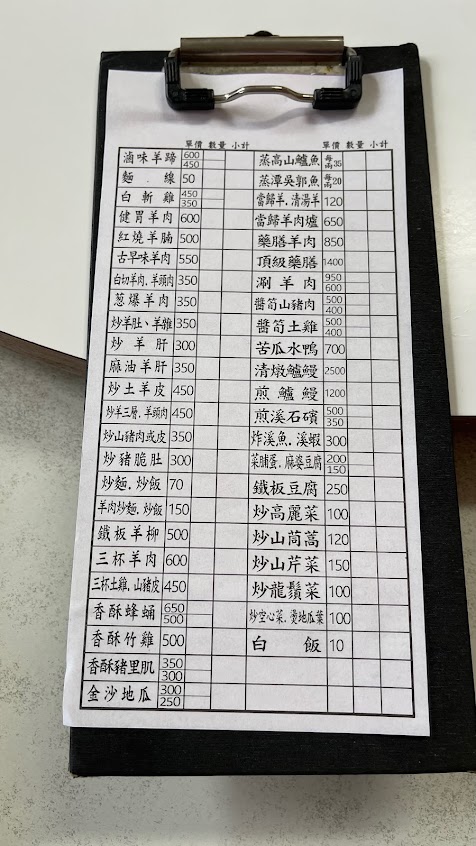 單價 數量 小計
滷味羊蹄 600 450
麵線 50
白斬雞 450 350
健胃羊肉 600
紅燒羊腩 500
古早味羊肉 550
白切羊肉.羊頭肉 350
蔥爆羊肉 350
炒羊肚、羊雜 350
炒羊肝 300
麻油羊肝 350
炒土羊皮 450
炒羊三層.羊頭肉 450
炒山豬肉或皮 350
炒豬脆肚 300
炒麵.炒飯 70
羊肉炒麵.炒飯 150
鐵板羊柳 500
三杯羊肉 600
三杯土雞.山豬皮 450
香酥蜂蛹 650 500
香酥竹雞 500
香酥豬里肌 350 300
金沙地瓜 300 250
單價 數量 小計
蒸高山鱸魚 每兩35
蒸潭吳郭魚 每兩20
當歸羊.清湯羊 120
當歸羊肉爐 650
藥膳羊肉 850
頂級藥膳 1400
涮羊肉 950 600
醬筍山豬肉 500 400
醬筍土雞 500 400
苦瓜水鴨 700
清燉鱸鰻 2500
煎鱸鰻 1200
煎溪石礦 500 350
炸溪魚.溪蝦 300
菜脯蛋.麻婆豆腐 200 150
鐵板豆腐 250
炒高麗菜 100
炒山茼蒿 120
炒山芹菜 150
炒龍鬚菜 100
炒空心菜.燙地瓜葉 100
白飯 10